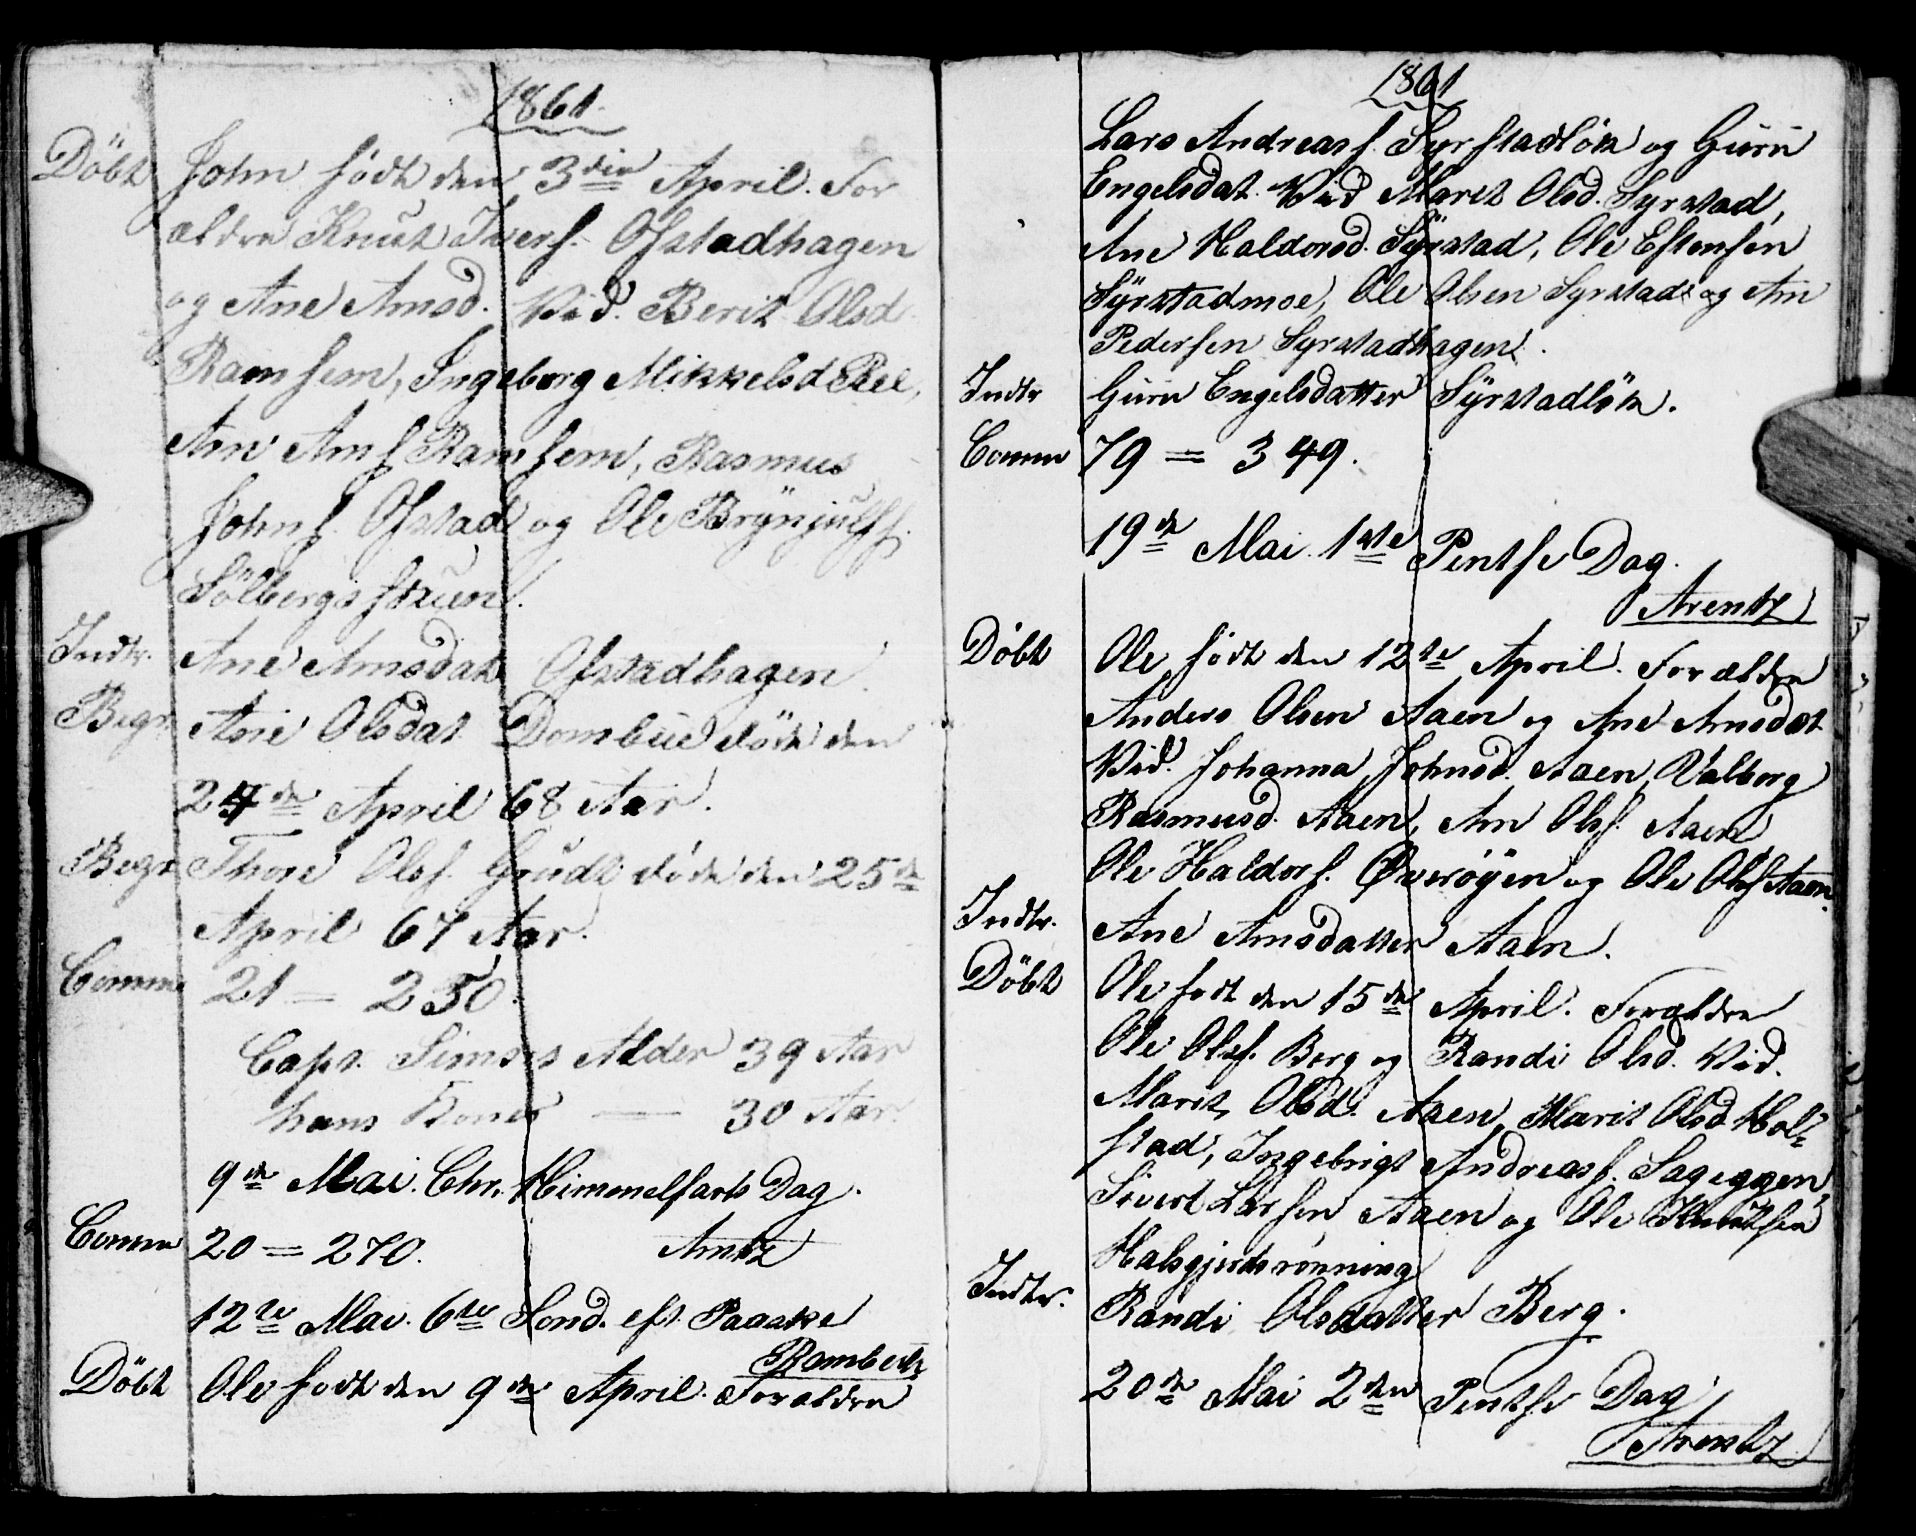 1861.
Döbt John födt den 3die April. For
ældre Knut Iverf. Ofstadhagen
og Ane Arnsd. Vid. Berit Olsd
Ramsem, Ingeborg Mikkelsd Ree,
Arn Arnf Ramsem, Rasmus
Johnf. Ofstad og Ole Brÿnjulff.
Sölbergsstuen.
Indtr. Ane Arnsdat Ofstadhagen.
Begr. Ane Olsdat Dombue döde den
24de April 68 Aar.
Begr Thore Olsf. Grudt döde den 25de
April 67 Aar.
Comm 21 = 250.
Capt. Simons Alder 39 Aar
hans Kones — 30 Aar.
9de Mai. Chr. Himmelfarts Dag.
Comm 20 = 270. Arntz
12te Mai. 6te Sönd. eft. Paaske
Rambech
Döbt Ole födt den 9de April. Forældre
1861
Lars Andreasf. Syrstadlök og Guru
Engelsdat. Vid Marit Olsd. Syrstad,
Ane Haldorsd. Sÿrstad, Ole Estensen
Sÿrstadmoe, Ole Olsen Syrstad og Arn
Pedersen Syrstadhagen.
Indtr Guru Engelsdatter Sÿrstadlök.
Comm 79 = 349.
19de Mai 1ste Pintse Dag.
Arentz
Döbt Ole födt den 12te April. Forældre
Anders Olsen Aaen og Ane Arnsdat
Vid. Johanna Johnsd. Aaen, Valborg
Rasmusd. Aaen, Arn Olsf. Aaen
Ole Haldorf. Øverøÿen og Ole Olsf Aaen.
Indtr. Ane Arnsdatter Aaen.
Döbt Ole födt den 15de April. Forældre
Ole Olsf. Berg og Randi Olsd. Vid.
Marit Olsd. Aaen, Marit Olsd. Hol-
stad, Ingebrigt Andreasf. Sageggen,
Sivert Larsen Aaen og Ole Knutsen
Halsgjerdsrønning
Indtr. Randi Olsdatter Berg.
20de Mai 2den Pintse Dag
Arentz